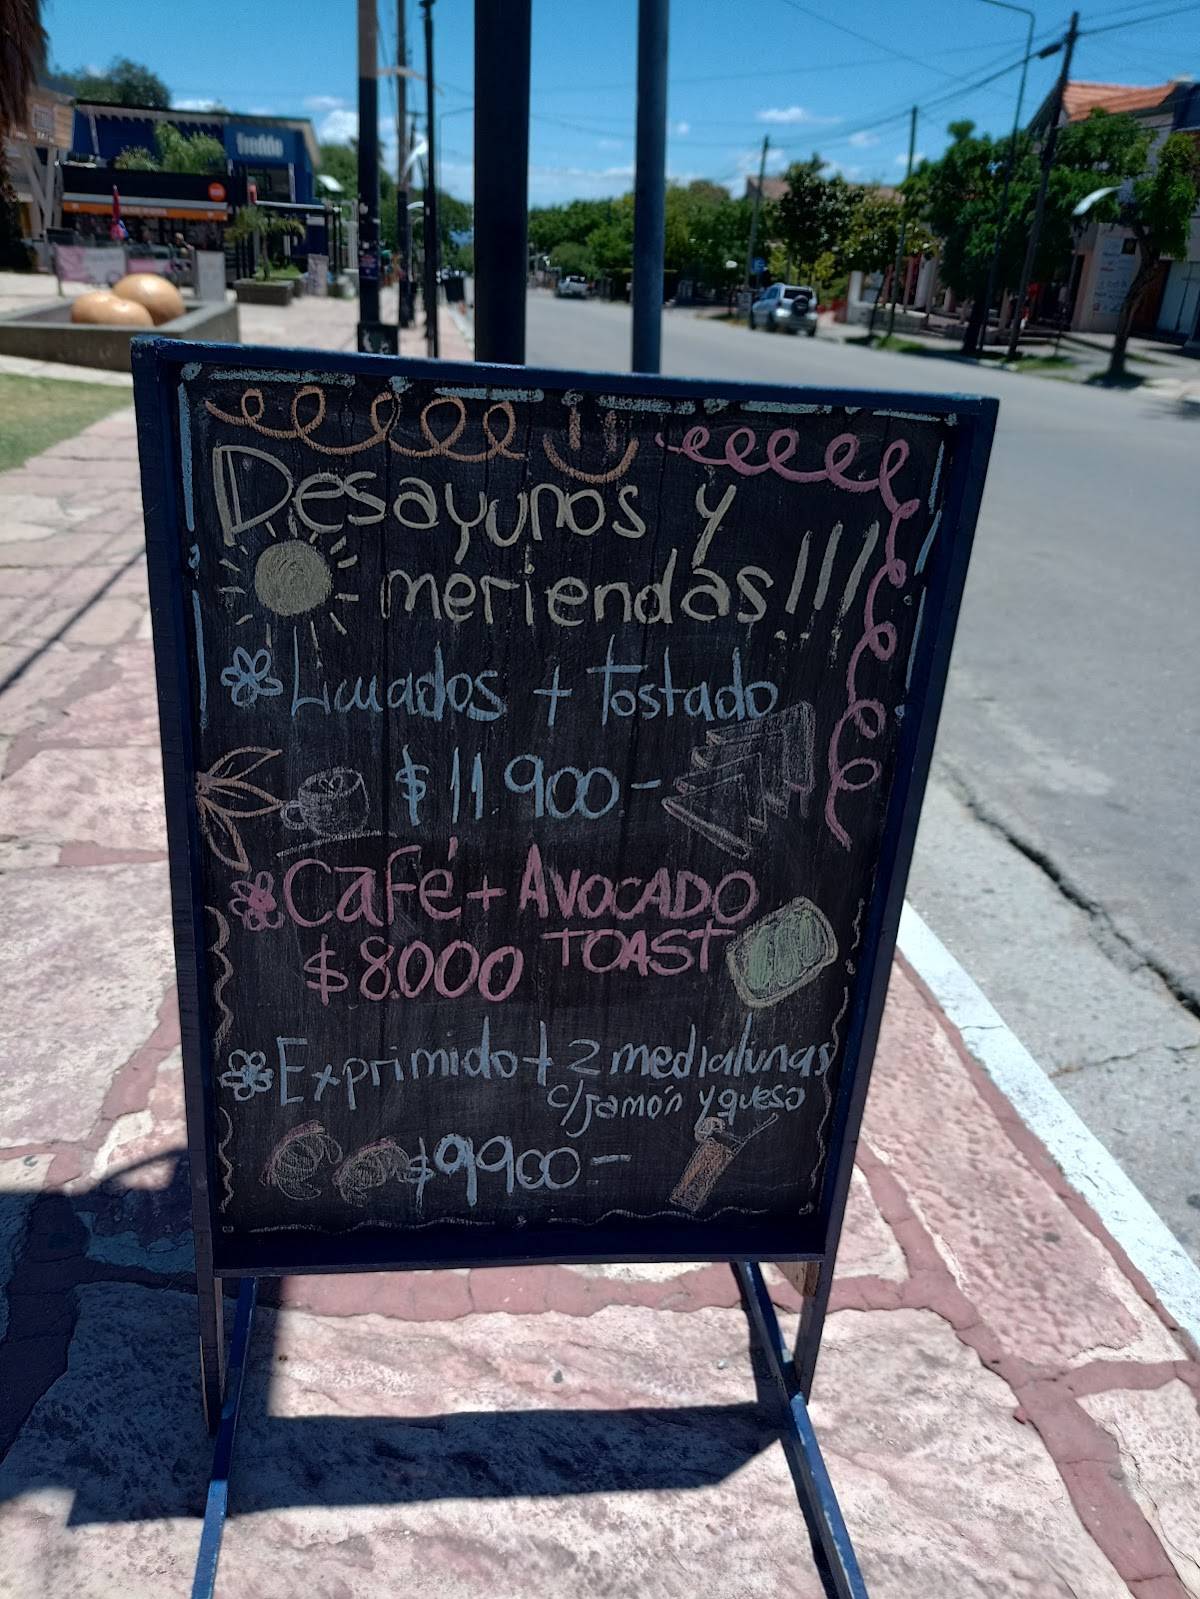 freddo
Desayunos y
meriendas!!!
Licuados + Tostado
$11.900.-
Café + AVOCADO
$8.000 TOAST
Exprimido + 2 medialunas
c/jamón y queso
$9900-